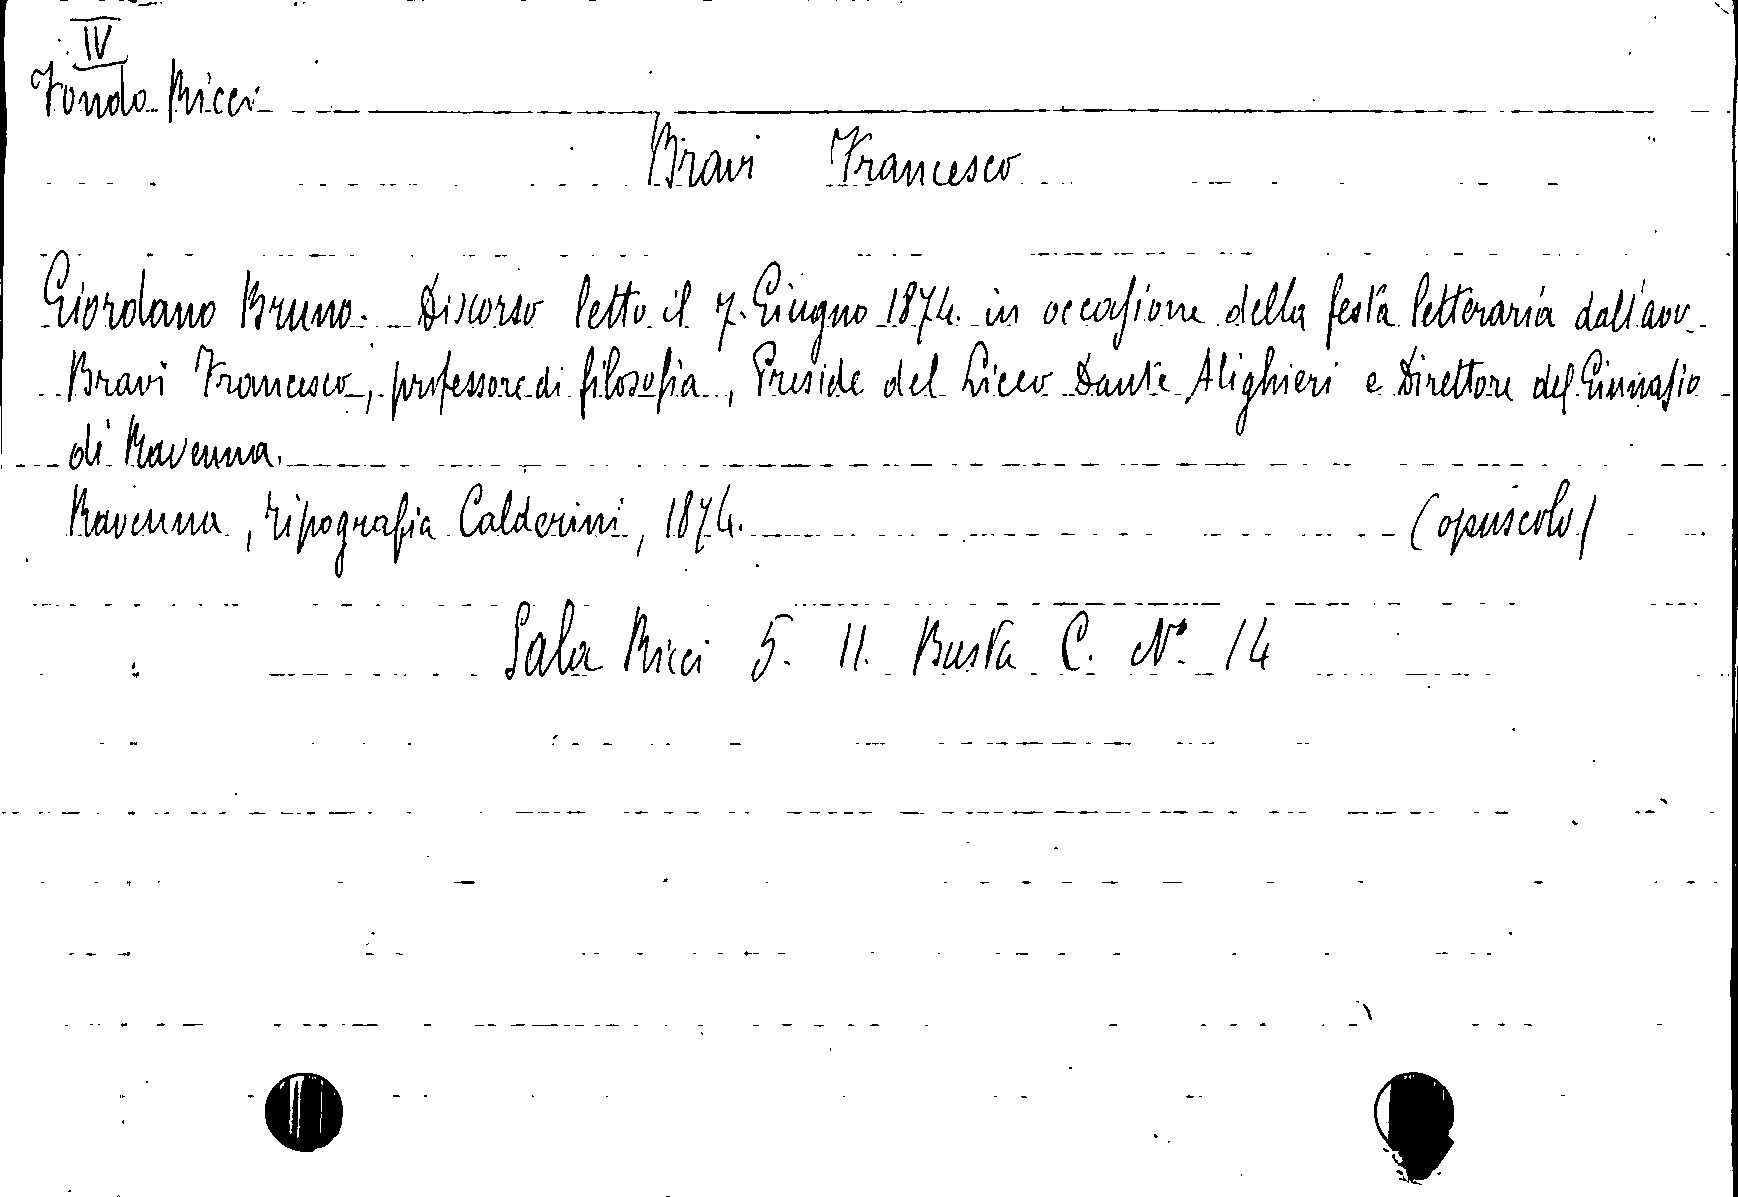 IV
Fondo Ricci
Bravi Francesco
Giordano Bruno. Discorso letto il 7. Giugno 1874. in occasione della festa letteraria dall'avv.
Bravi Francesco, professore di filosofia, Preside del Liceo Dante Alighieri e Direttore del Ginnasio
di Ravenna.
Ravenna, tipografia Calderini, 1874. (opuscolo)
Sala Ricci 5. 11. Busta C. N° 14